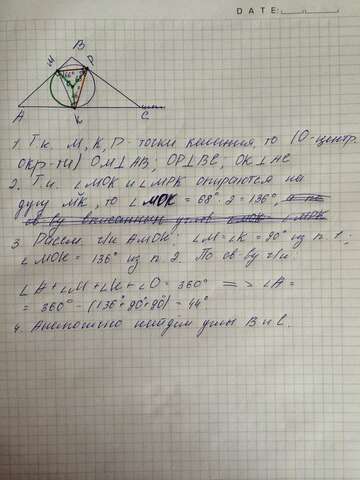 DATE:
B
M
P
A
K
C
1. Т.к. M, K, P - точки касания, то (O-центр.
окр-ти) OM⊥AB; OP⊥BC; OK⊥AC
2. Т.к. ∠MOK и ∠MPK опираются на
дугу MK, то ∠MOK = 68°·2=136°, а по
св-ву вписанных углов
3. Рассм. ч/к AMOK; ∠M=∠K=90° из п. 1.;
∠MOK = 136° из п. 2. По св-ву ч/к:
∠A+∠M+∠K+∠O=360° => ∠A=
= 360° - (136°+90°+90°) = 44°
4. Аналогично найдём углы B и C.